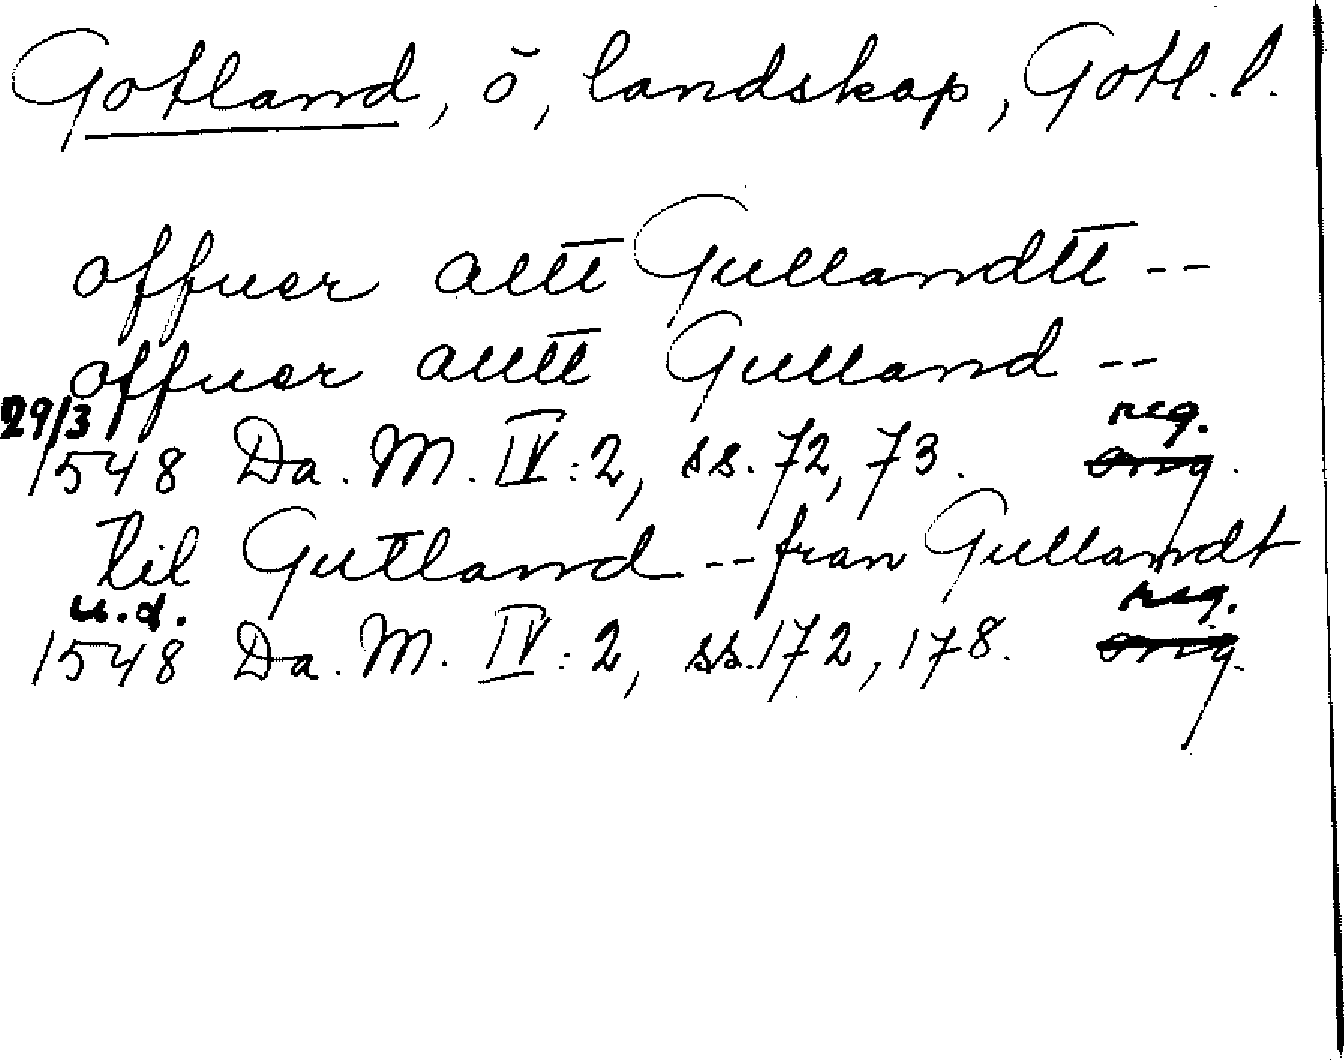 Gotland, ö, landskap, Gotl. l.
offuer altt Gullandtt --
offuer alltt Gulland --
29/3 reg.
1548 Da. M. IV:2, ss. 72, 73. orig.
til Gutland -- fran Gullandt
u.d. reg.
1548 Da. M. IV:2, ss. 172, 178. orig.